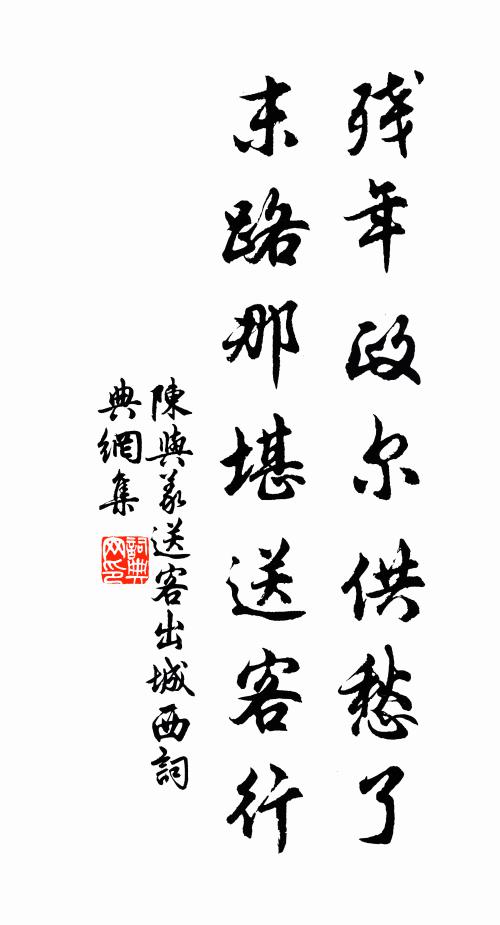 残年政尔供愁了
末路那堪送客行
陳與義送客出城西詞
典網集
詞典網印